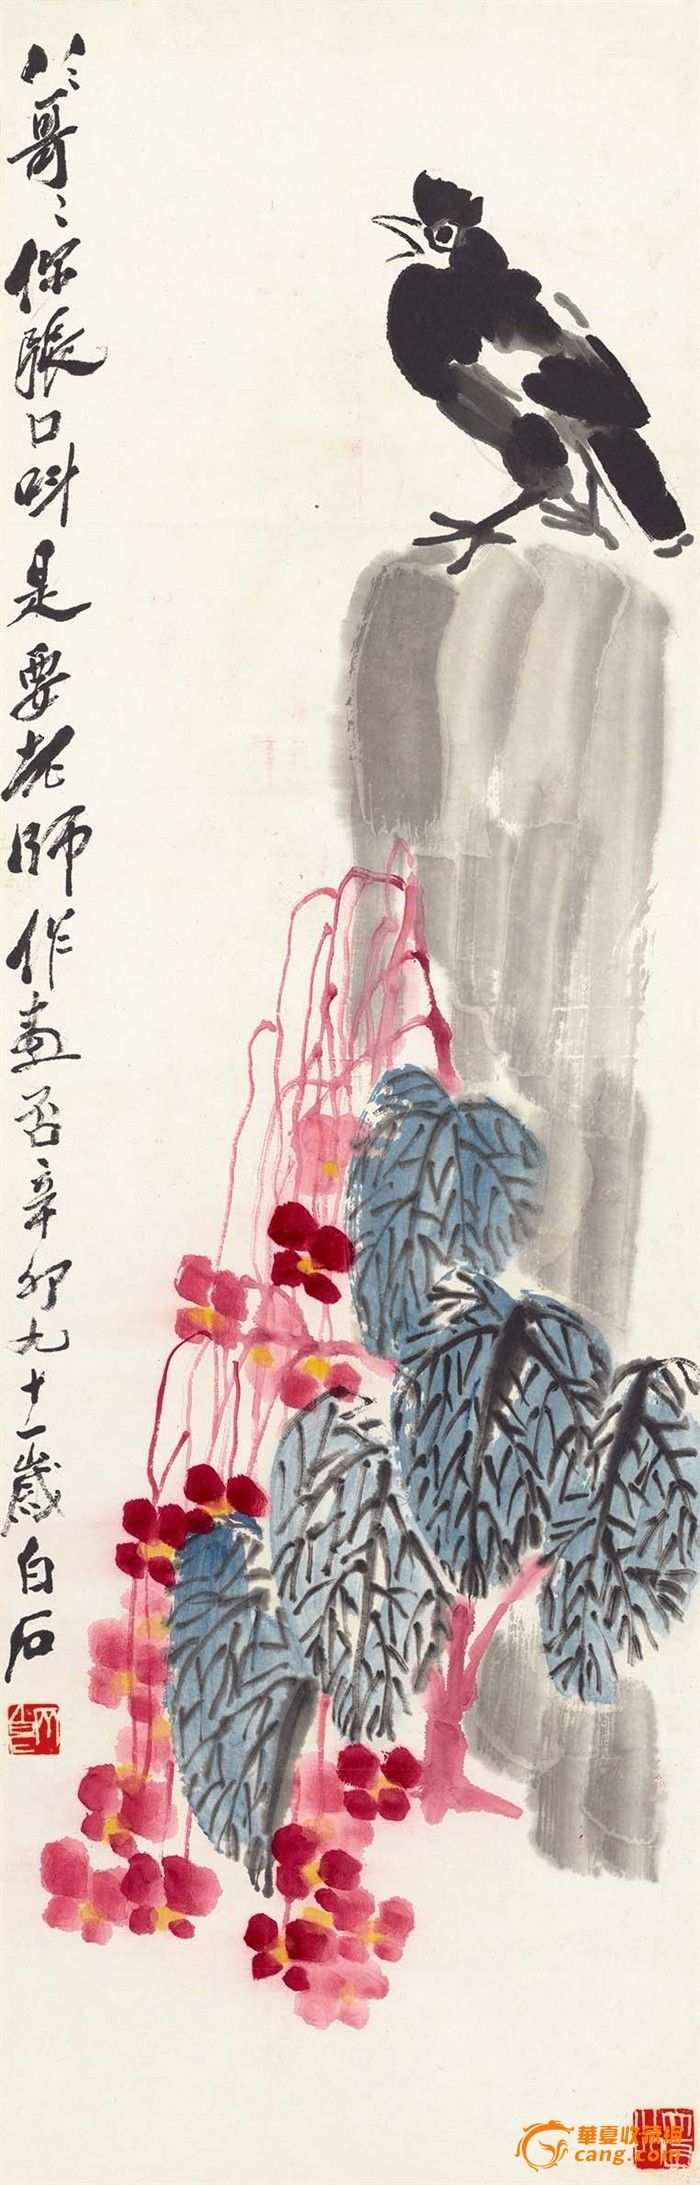 八〻哥〻你張口叫是要老師作畫否辛卯九十一歲白石
華夏收藏網
cang.com